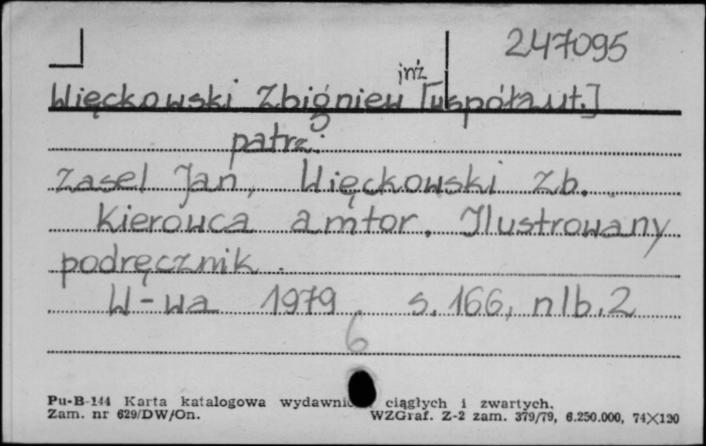 247095
Więckowski Zbigniew inż [współaut.]
patrz:
Zasel Jan, Więckowski Zb.
Kierowca amtor. Ilustrowany
podręcznik.
W-wa 1979, s. 166, nlb. 2
6
Pu-B-144 Karta katalogowa wydawnic ciągłych i zwartych.
Zam. nr 629/DW/On. WZGraf. Z-2 zam. 379/79, 6.250.000, 74×120